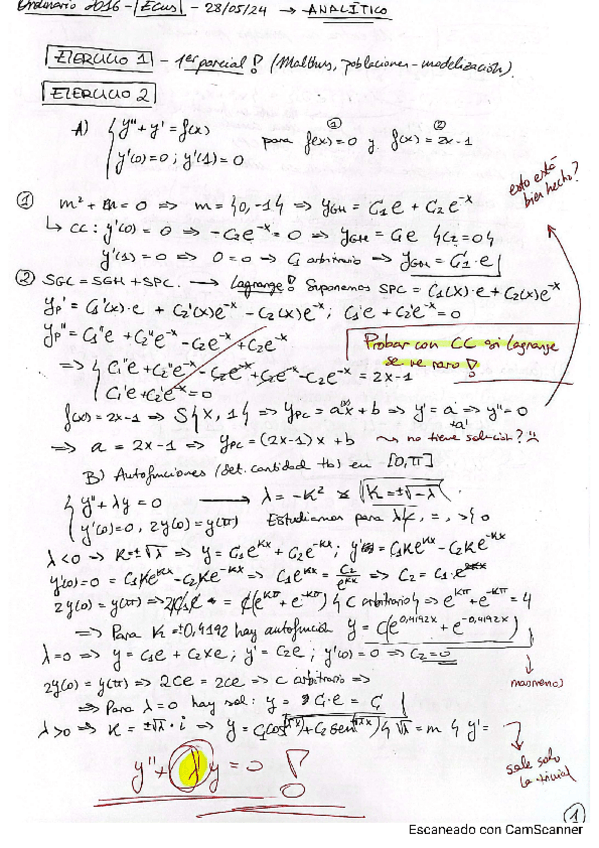 Ordinario 2016 - Ecus - 28/05/24 → ANALÍTICO
EJERCICIO 1 - 1er parcial! (Malthus, poblaciones - modelización).
EJERCICIO 2
A) { y'' + y' = f(x) para f(x) = 0 ① y f(x) = 2x-1 ②
y'(0) = 0 ; y'(1) = 0
esto está bien hecho?
① m² + m = 0 ⇒ m = {0, -1} ⇒ yGH = C1e + C2e^-x
↳ CC: y'(0) = 0 ⇒ -C2e^-x = 0 ⇒ yGH = C1e {C2 = 0}
y'(1) = 0 ⇒ 0 = 0 ⇒ C1 arbitrario ⇒ yGH = C1·e
② SGC = SGH + SPC. → Lagrange! Suponemos SPC = C1(x)·e + C2(x)e^-x
yp' = C1'(x)·e + C2'(x)e^-x - C2(x)e^-x ; C1'e + C2'e^-x = 0
yp'' = C1''e + C2''e^-x - C2e^-x + C2e^-x
Probar con CC si Lagrange
se ve raro!
⇒ { C1''e + C2''e^-x - C2e^-x + C2e^-x - C2e^-x = 2x-1
C1'e + C2'e^-x = 0
f(x) = 2x-1 ⇒ S{x, 1} ⇒ ypc = ax + b ⇒ y' = a ⇒ y'' = 0
⇒ a = 2x-1 ⇒ ypc = (2x-1)x + b ⇝ no tiene solución? :(
B) Autofunciones (det. cantidad tb) en [0, π]
{ y'' + λy = 0 → λ = -K² K = ±√-λ
y'(0) = 0, 2y(0) = y(π) Estudiamos para λ <, =, > 0
λ<0 ⇒ K = ±√λ ⇒ y = C1e^Kx + C2e^-Kx ; y' = C1Ke^Kx - C2Ke^-Kx
y'(0) = 0 = C1Ke^Kx - C2Ke^-Kx ⇒ C1e^Kx = C2/e^Kx ⇒ C2 = C1·e^2Kx
2y(0) = y(π) ⇒ = C(e^Kπ + e^-Kπ) {C arbitrario} ⇒ e^Kπ + e^-Kπ = 4
⇒ Para K = ±0,4192 hay autofunción y = C(e^0,4192x + e^-0,4192x)
λ=0 ⇒ y = C1e + C2xe ; y' = C2e ; y'(0) = 0 ⇒ C2 = 0
masmenos
2y(0) = y(π) ⇒ 2Ce = 2Ce ⇒ C arbitrario ⇒
⇒ Para λ = 0 hay sol: y = 2C·e = C
λ>0 ⇒ K = ±√λ·i ⇒ y = C1cos(√λx) + C2sen(√λx) {√λ = m} y' =
sale solo
la trivial
y'' + λy = 0 !
1
Escaneado con CamScanner